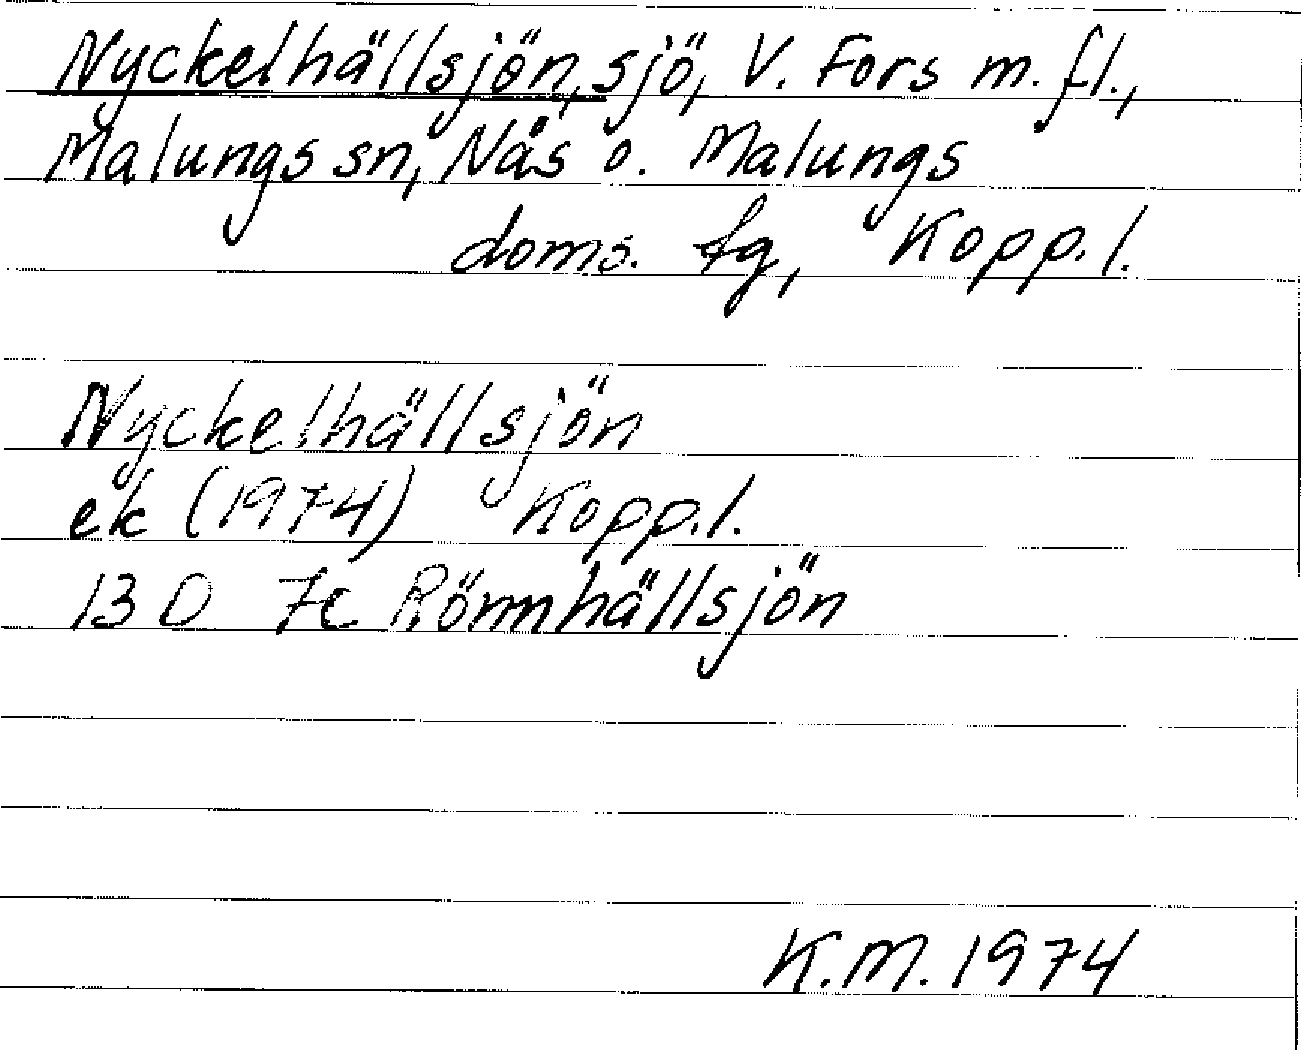 Nyckelhällsjön, sjö, V. Fors m. fl.,
Malungs sn, Nås o. Malungs
doms. fg, Kopp. l.
Nyckelhällsjön
ek (1974) Kopp. l.
13 D 7c Rönnhällsjön
K.M. 1974